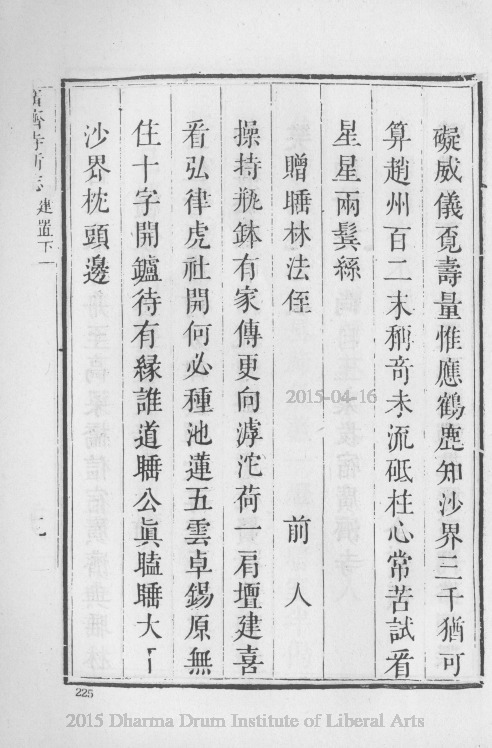 礙威儀覔壽量惟應鶴鹿知沙界三千猶可
算趙州百二未稱竒末流砥柱心常苦試看
星星兩鬂絲
贈睡林法侄 前人
操持瓶鉢有家傳更向滹沱荷一肩壇建喜
看弘律虎社開何必種池蓮五雲卓錫原無
住十字開鑪待有緣誰道睡公眞瞌睡大
沙界枕頭邊
濟寺新志 建置下
225
2015-04-16
2015 Dharma Drum Institute of Liberal Arts